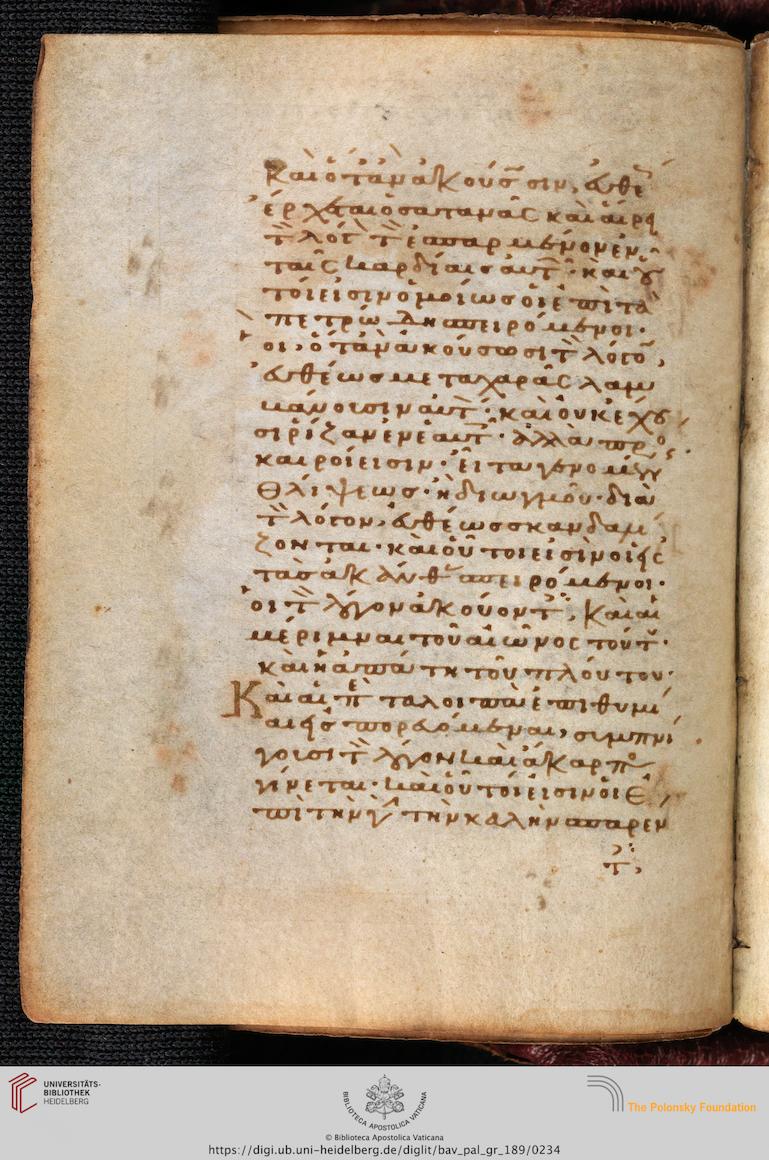 καὶ ὅταν ἀκούσωσιν, ἐυθὲ
ἔρχεται ὁ σατανᾶς καὶ αἴρει
τὸν λόγον τὸν ἐσπαρμένον ἐν
ταῖς καρδίαις αὐτῶν· καὶ οὗ
τοί εἰσιν ὁμοίως οἱ ἐπὶ τὰ
πετρώδη σπειρόμενοι·
οἳ, ὅταν ἀκούσωσι τὸν λόγον,
ἐυθέως μετὰ χαρᾶς λαμ
βάνουσιν αὐτὸν· καὶ οὐκ ἔχου
σι ῥίζαν ἐν ἑαυτοῖς· ἀλλὰ πρόσ
καιροί εἰσιν· εἶτα γενομένης
θλίψεως· ἢ διωγμοῦ· διὰ
τὸν λόγον, ἐυθέως σκανδαλί
ζονται· καὶ οὗτοι εἰσὶν οἱ εἰς
τὰς ἀκάνθας σπειρόμενοι·
οἱ τὸν λόγον ἀκούοντες, καὶ αἱ
μέριμναι τοῦ αἰῶνος τούτου·
καὶ ἡ ἀπάτη τοῦ πλούτου·
Καὶ αἱ περὶ τὰ λοιπὰ ἐπιθυμί
αι εἰσπορευόμεναι, συμπνί
γουσι τὸν λόγον καὶ ἄκαρπος
γίνεται· καὶ οὗτοί εἰσιν οἱ ἐ
πὶ τὴν γῆν τὴν καλὴν σπαρέν
τες,
UNIVERSITÄTS-
BIBLIOTHEK
HEIDELBERG
BIBLIOTECA APOSTOLICA VATICANA
The Polonsky Foundation
© Biblioteca Apostolica Vaticana
https://digi.ub.uni-heidelberg.de/diglit/bav_pal_gr_189/0234